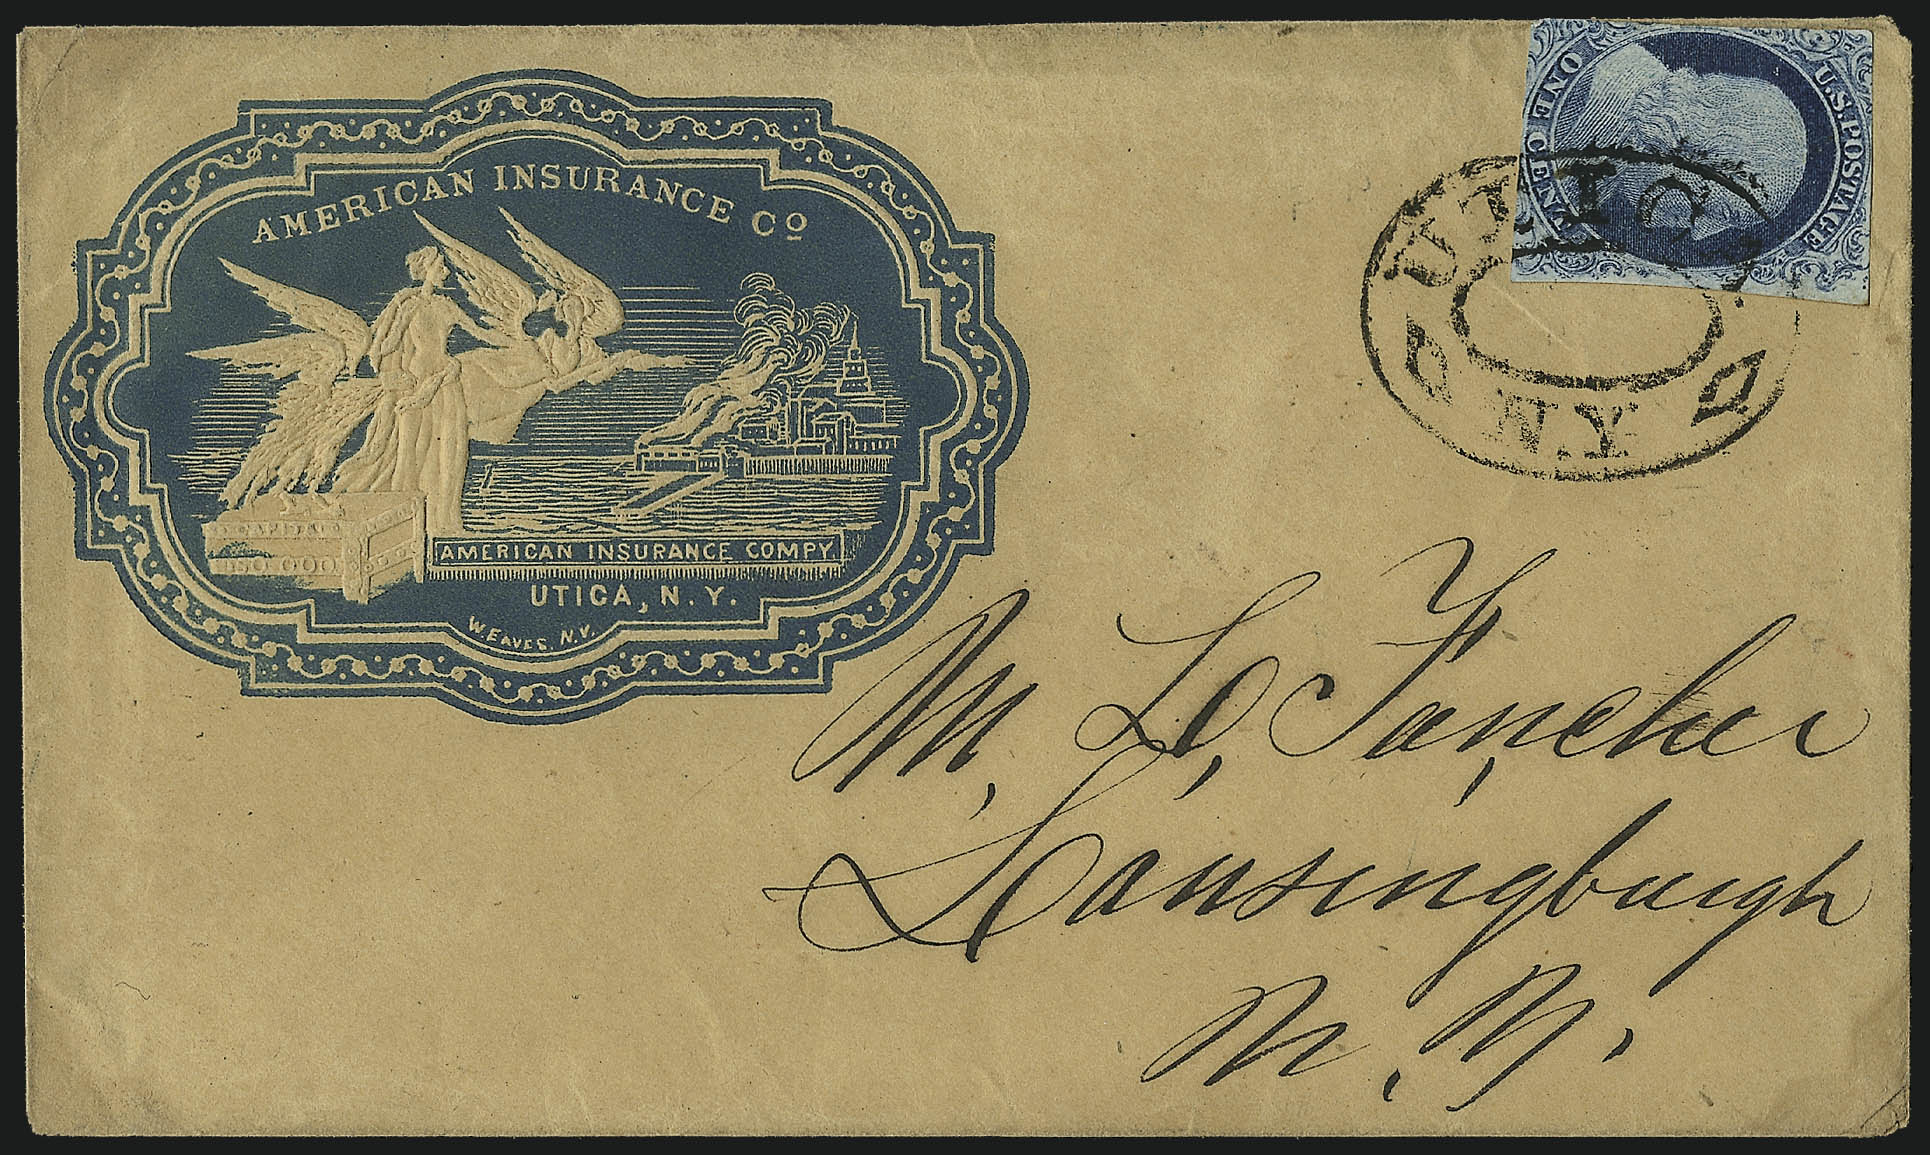 AMERICAN INSURANCE Co
CAPITAL
150 000
AMERICAN INSURANCE COMPY
UTICA, N.Y.
WEAVES. N.Y.
U.S. POSTAGE
ONE CENT
UTICA
N.Y.
M. L, Fancher
Lansingburgh
N. Y.